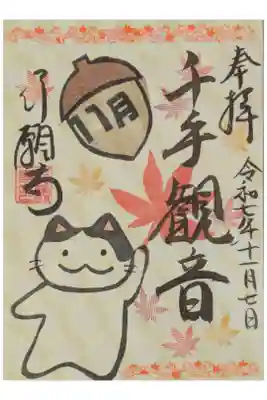 奉拝
令和七年十一月廿日
千手観音
11月